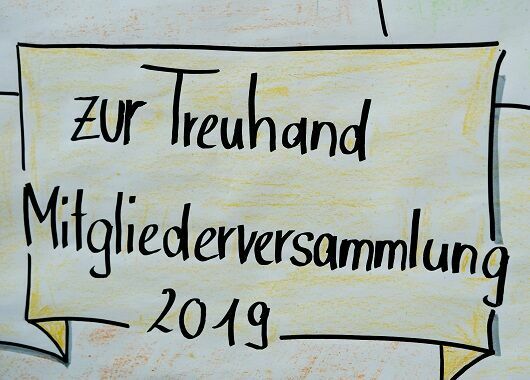 zur Treuhand
Mitgliederversammlung
2019